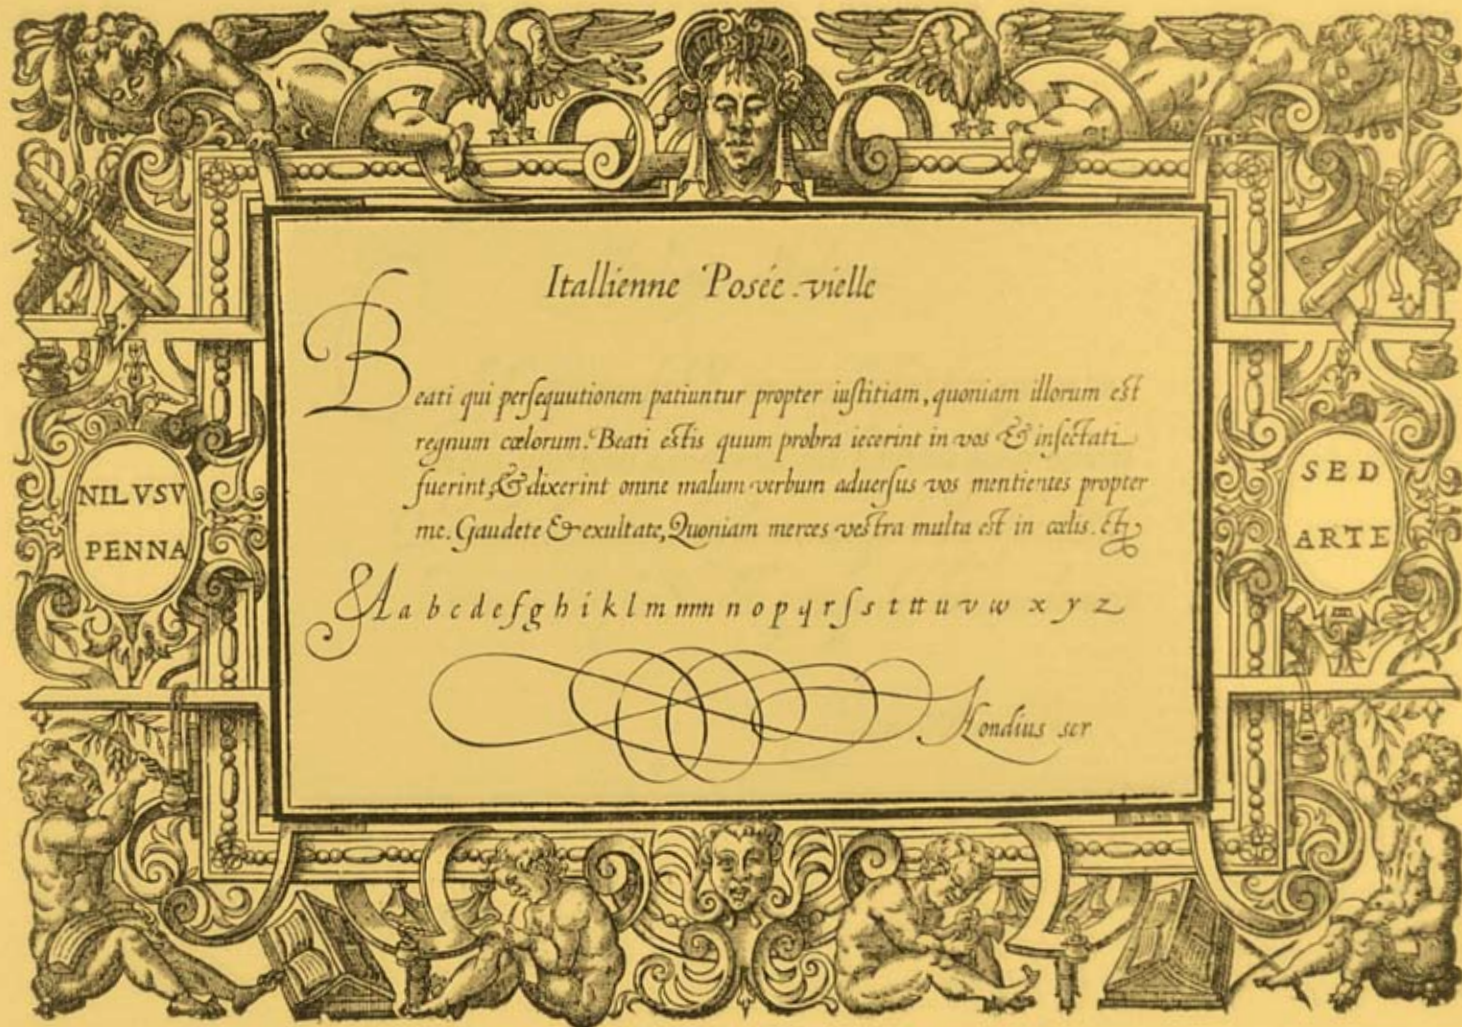 Itallienne Posée vielle
Beati qui perſequutionem patiuntur propter iuſtitiam, quoniam illorum est
regnum cœlorum. Beati estis quum probra iecerint in vos & inſectati
fuerint, & dixerint omne malum verbum aduerſus vos mentientes propter
me. Gaudete & exultate, Quoniam merces vestra multa est in cœlis. etc
& A a b c d e f g h i k l m mm n o p q r ſ s t tt u v w x y z
Hondius scr
NIL VSV
PENNA
SED
ARTE